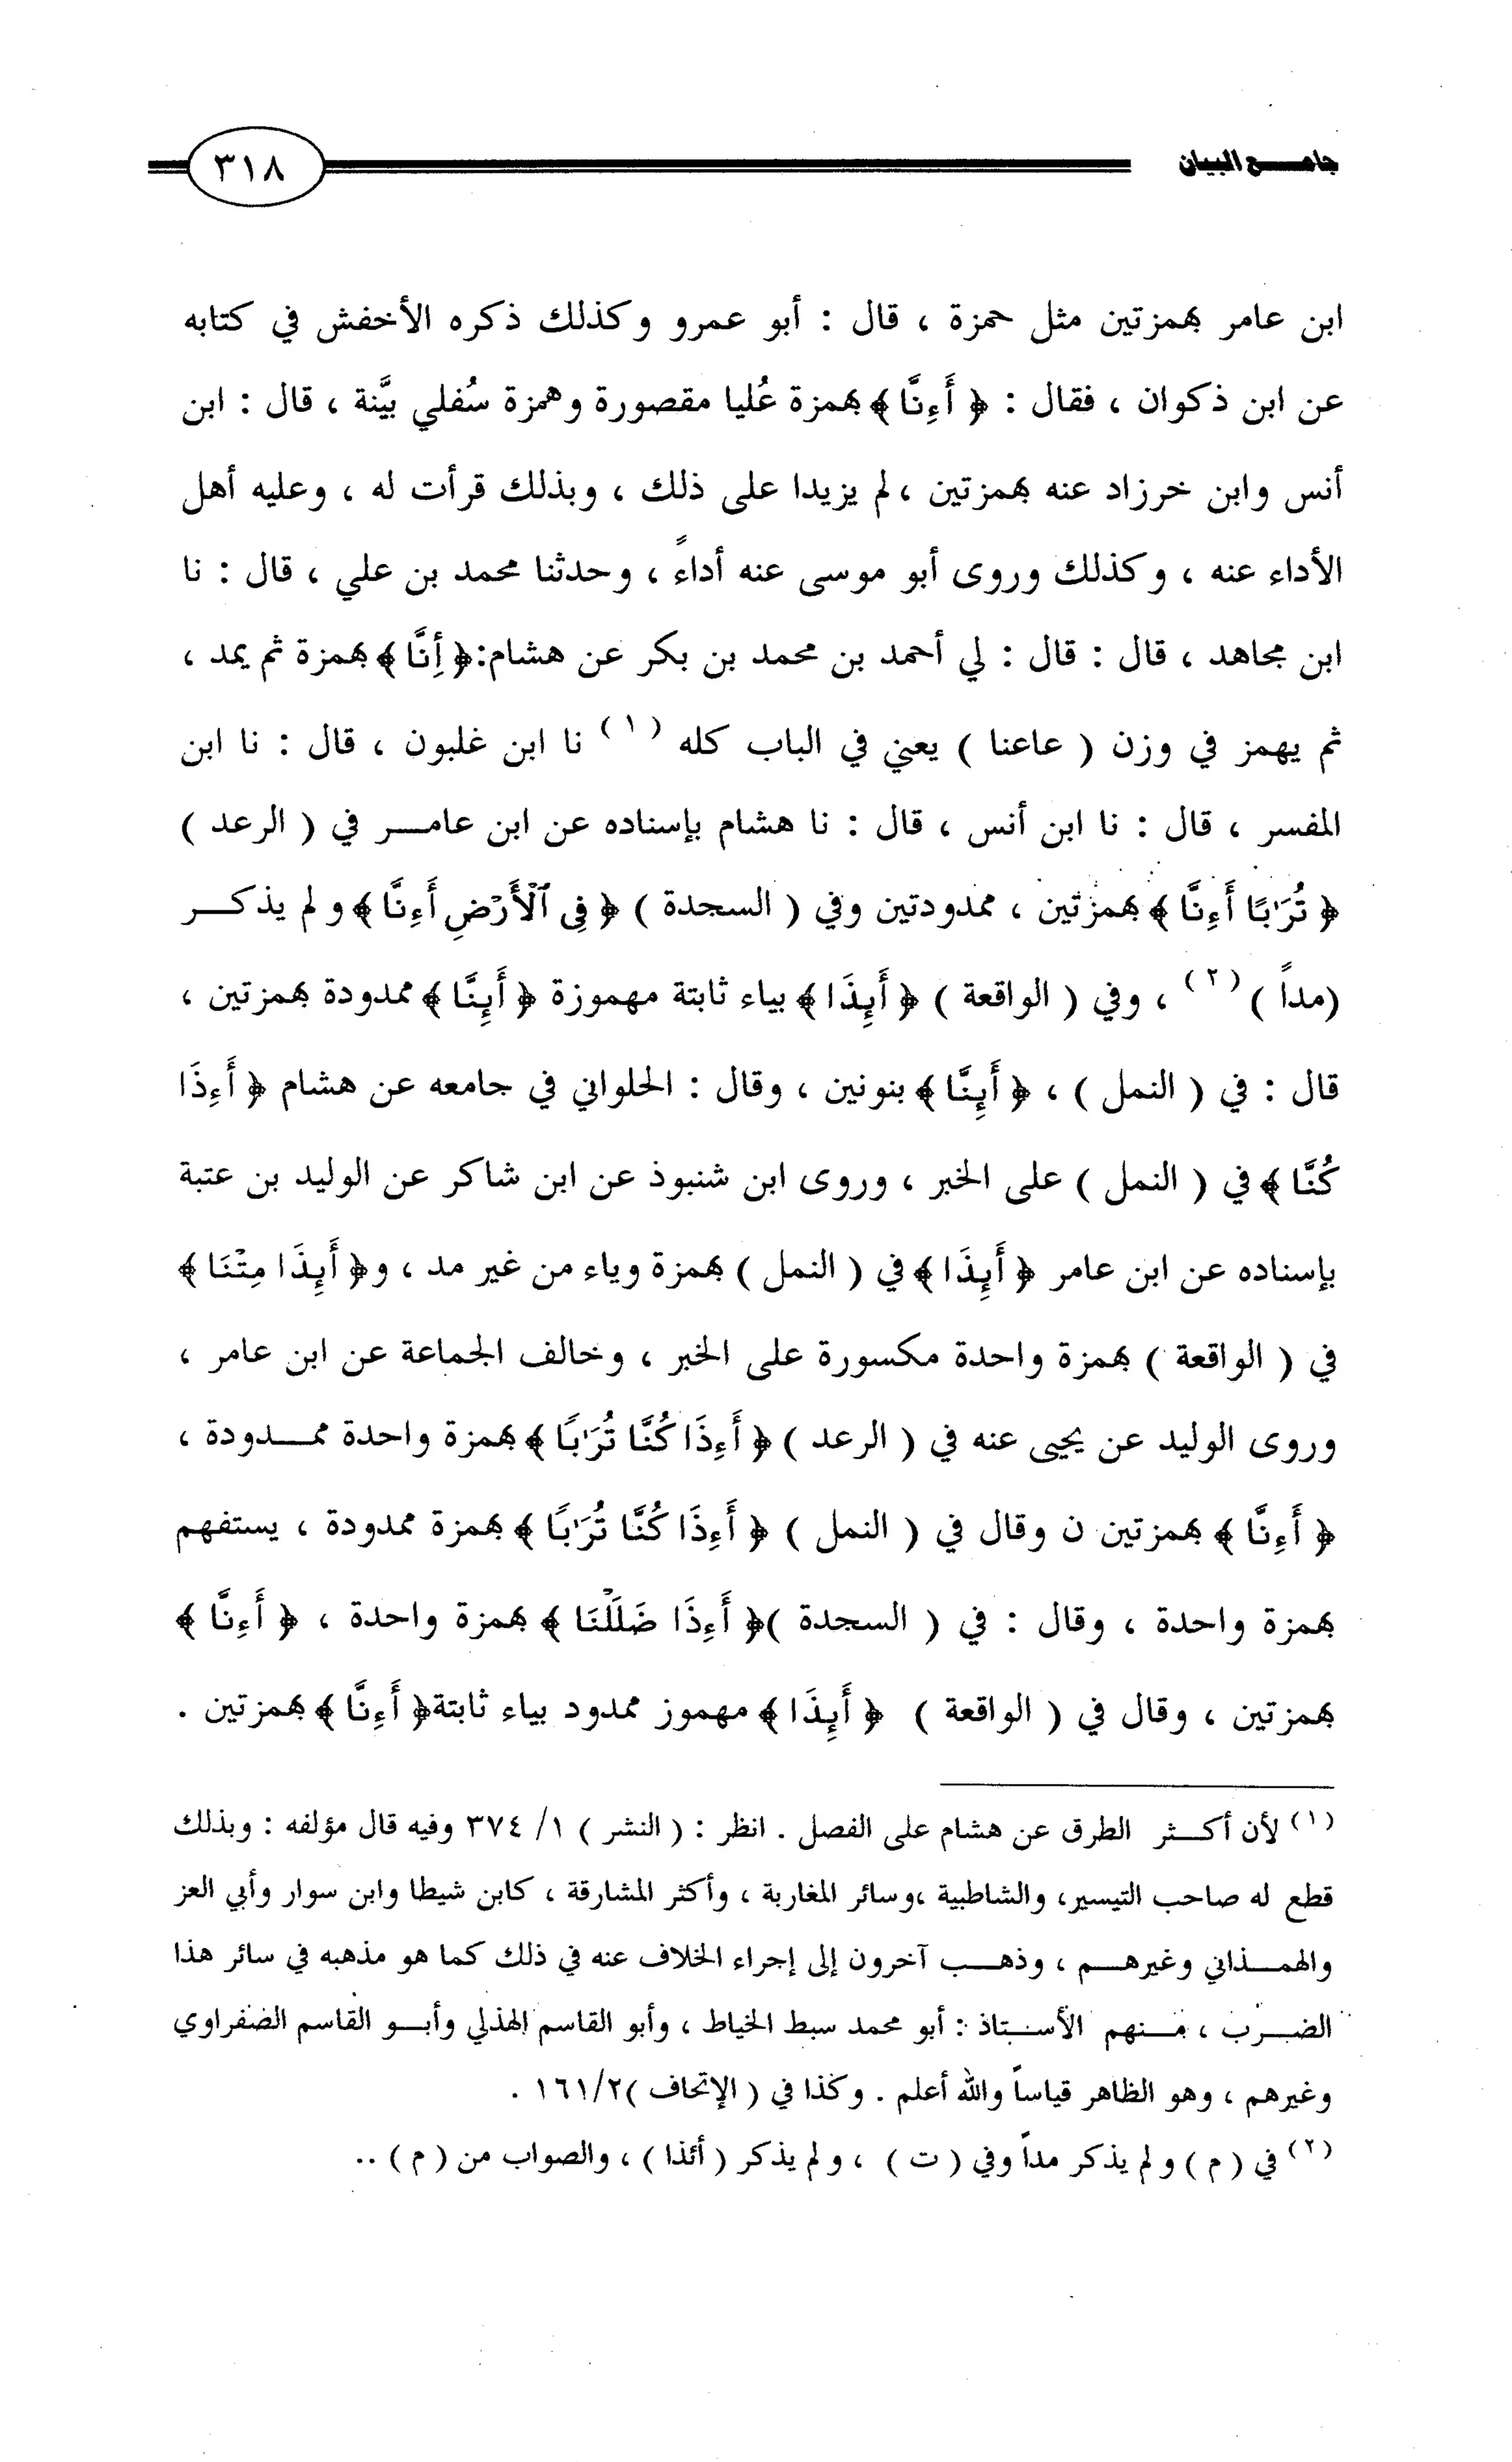 جامع البيان ٣١٨
ابن عامر بهمزتين مثل حمزة ، قال : أبو عمرو وكذلك ذكره الأخفش في كتابه
عن ابن ذكوان ، فقال : ﴿ أَءِنَّا ﴾ بهمزة عُليا مقصورة وهمزة سُفلي بيَّنة ، قال : ابن
أنس وابن خرزاد عنه بهمزتين ، لم يزيدا على ذلك ، وبذلك قرأت له ، وعليه أهل
الأداء عنه ، وكذلك وروى أبو موسى عنه أداءً ، وحدثنا محمد بن علي ، قال : نا
ابن مجاهد ، قال : قال : لي أحمد بن محمد بن بكر عن هشام:﴿ أِنَّا ﴾ بهمزة ثم يمد ،
ثم يهمز في وزن ( عاعنا ) يعني في الباب كله (١) نا ابن غلبون ، قال : نا ابن
المفسر ، قال : نا ابن أنس ، قال : نا هشام بإسناده عن ابن عامر في ( الرعد )
﴿ تُرَٰبًا أَءِنَّا ﴾ بهمزتين ، ممدودتين وفي ( السجدة ) ﴿ فِى ٱلْأَرْضِ أَءِنَّا ﴾ ولم يذكر
(مداً ) (٢) ، وفي ( الواقعة ) ﴿ أَيِذَا ﴾ بياء ثابتة مهموزة ﴿ أَيِنَّا ﴾ ممدودة بهمزتين ،
قال : في ( النمل ) ، ﴿ أَيِنَّا ﴾ بنونين ، وقال : الحلواني في جامعه عن هشام ﴿ أَءِذَا
كُنَّا ﴾ في ( النمل ) على الخبر ، وروى ابن شنبوذ عن ابن شاكر عن الوليد بن عتبة
بإسناده عن ابن عامر ﴿ أَيِذَا ﴾ في ( النمل ) بهمزة وياء من غير مد ، و﴿ أَيِذَا مِتْنَا ﴾
في ( الواقعة ) بهمزة واحدة مكسورة على الخبر ، وخالف الجماعة عن ابن عامر ،
وروى الوليد عن يحيى عنه في ( الرعد ) ﴿ أَءِذَا كُنَّا تُرَٰبًا ﴾ بهمزة واحدة ممدودة ،
﴿ أَءِنَّا ﴾ بهمزتين ن وقال في ( النمل ) ﴿ أَءِذَا كُنَّا تُرَٰبًا ﴾ بهمزة ممدودة ، يستفهم
بهمزة واحدة ، وقال : في ( السجدة )﴿ أَءِذَا ضَلَلْنَا ﴾ بهمزة واحدة ، ﴿ أَءِنَّا ﴾
بهمزتين ، وقال في ( الواقعة ) ﴿ أَيِذَا ﴾ مهموز ممدود بياء ثابتة﴿ أَءِنَّا ﴾ بهمزتين .
(١) لأن أكثر الطرق عن هشام على الفصل . انظر : ( النشر ) ١/ ٣٧٤ وفيه قال مؤلفه : وبذلك
قطع له صاحب التيسير، والشاطبية ،وسائر المغاربة ، وأكثر المشارقة ، كابن شيطا وابن سوار وأبي العز
والهمذاني وغيرهم ، وذهب آخرون إلى إجراء الخلاف عنه في ذلك كما هو مذهبه في سائر هذا
الضرب ، منهم الأستاذ : أبو محمد سبط الخياط ، وأبو القاسم الهذلي وأبو القاسم الضفراوي
وغيرهم ، وهو الظاهر قياساً والله أعلم . وكذا في ( الإتحاف )١٦١/٢ .
(٢) في ( م ) ولم يذكر مداً وفي ( ت ) ، ولم يذكر ( أئذا ) ، والصواب من ( م ) ..